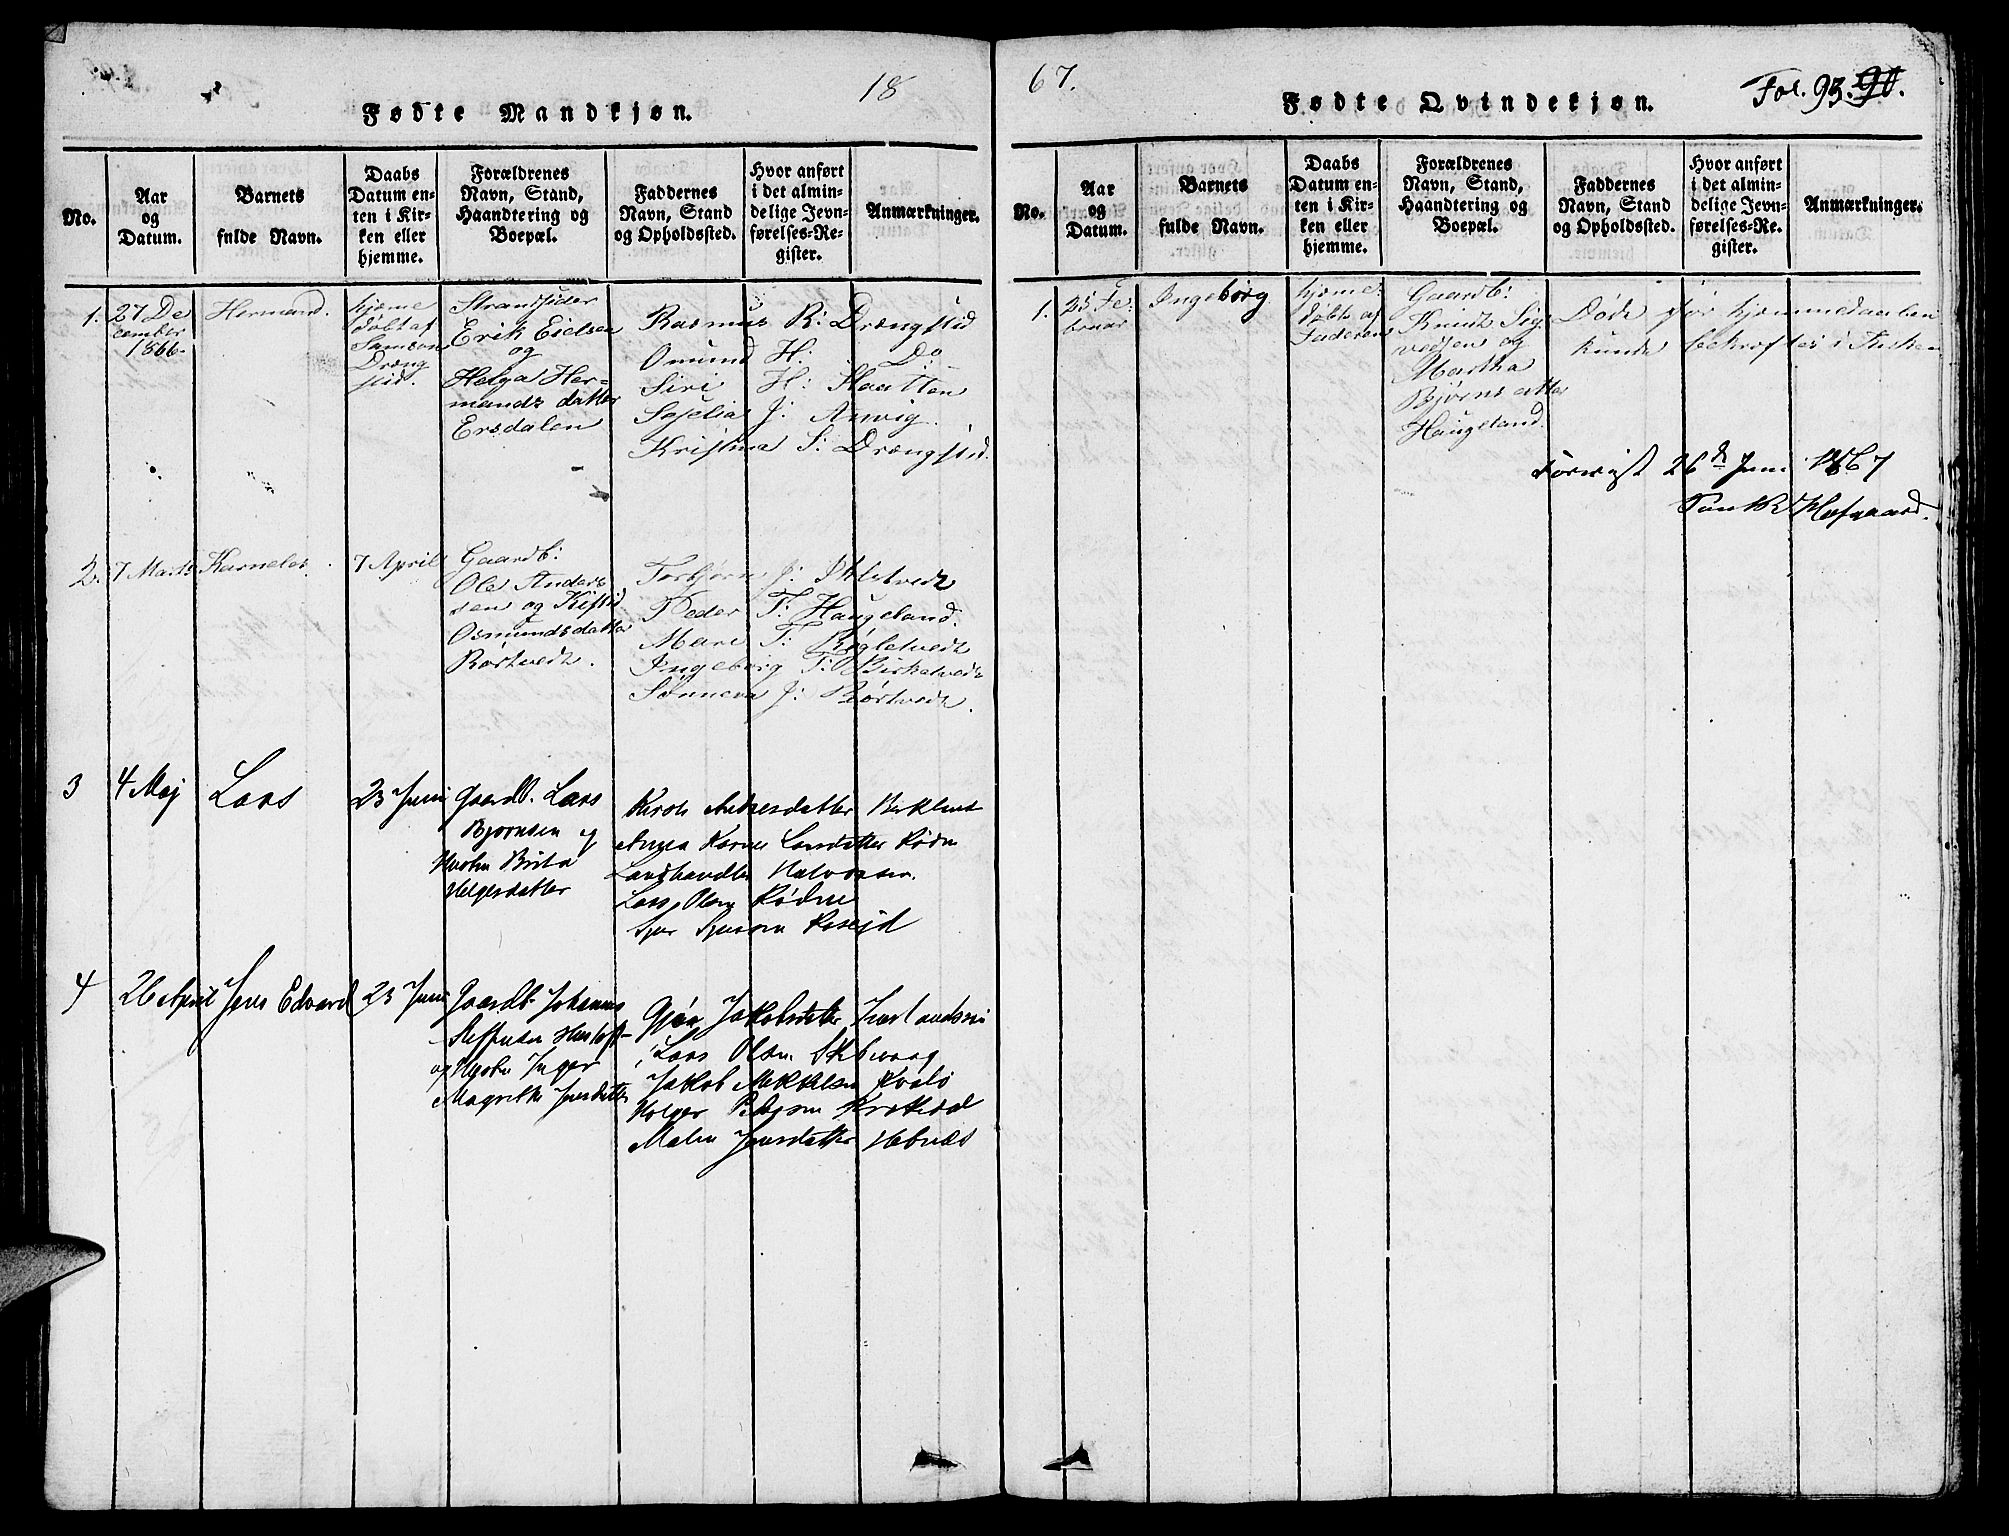 18
Fødte Mandkjøn.
No.
Aar
og
Datum.
Barnets
fulde Navn.
Daabs
Datum en-
ten i Kir-
ken eller
hjemme.
Forældrenes
Navn, Stand,
Haandtering og
Boepæl.
Faddernes
Navn, Stand
og Opholdssted.
Hvor anført
i det almin-
delige Jevn-
førelses-Re-
gister.
Anmærkninger.
1.
27 De
cember
1866.
Hermand.
hjeme
døbt af
Samson
Dræng
stid.
Strandsider
Erik Eielsen
og
Helga Her-
mands datter
Ersdalen
Rasmus R: Drængstid
Omund H: Do
Siri H: Slaatten
Seselia J: Anvig.
Kristina S: Drængstid.
2.
7 Marts
Karneles.
7 April
Gaardb:
Ole Anders
sen og Kistid
Osmundsdatter
Rørtvedt.
Torbjørn J:
Peder T: Haugeland.
Mari T: Røgletvedt
Ingeborg T: Birketvedt
Sønneva J: Rørtvedt.
3
4 Maj
Lars
23 Juni
Gaardb. Lars
Bjørnsen og
Hustru Brita
Helgesdatter
Andersdatter
Anna Karine Larsdatter Rødne
Landhandler Halvorsen.
Lars Olsen Rødne
Sjur Sjursen
4
26 April
Jens Edvard
23 Juni
Gaardb. Johannes
Steffensen
og Hustru Inger
Magrethe Jensdatter
Gjøa Jakobsdatter
Lars Olsen
Jakob Mikkelsen Kvalø
Holger Pedersen Krokedal
Malen Jensdatter Hebnæs
67.
Fol. 93. 90.
Fødte Qvindekjøn.
No.
Aar
og
Datum.
Barnets
fulde Navn.
Daabs
Datum en-
ten i Kir-
ken eller
hjemme.
Forældrenes
Navn, Stand,
Haandtering og
Boepæl.
Faddernes
Navn, Stand
og Opholdssted.
Hvor anført
i det almin-
delige Jevn-
førelses-Re-
gister.
Anmærkninger.
1.
25 Fe-
bruar
Ingeborg
hjeme-
døbt af
Faderen
Gaardb:
Knudt Sig-
vedsen og
Martha
Bjørns datter
Haugeland.
Døde før hjemmedaaben
kunde bekræftes i Kirken
Forevist 26de Juni 1867
Hofgaard.